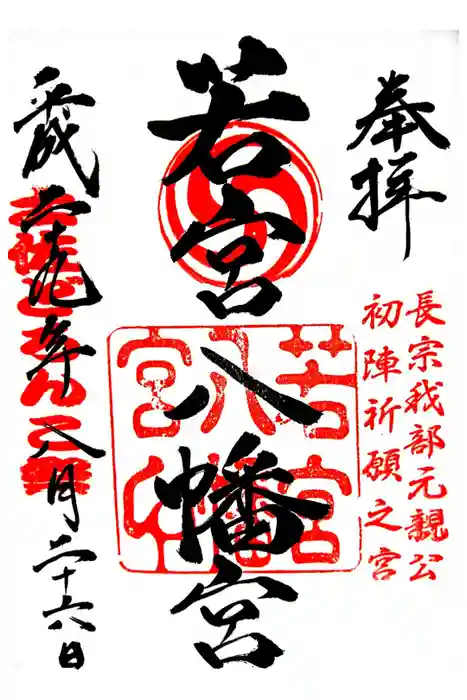 奉拝
長宗我部元親公
初陣祈願之宮
若宮八幡宮
若宮八幡宮
平成二十九年八月二十六日